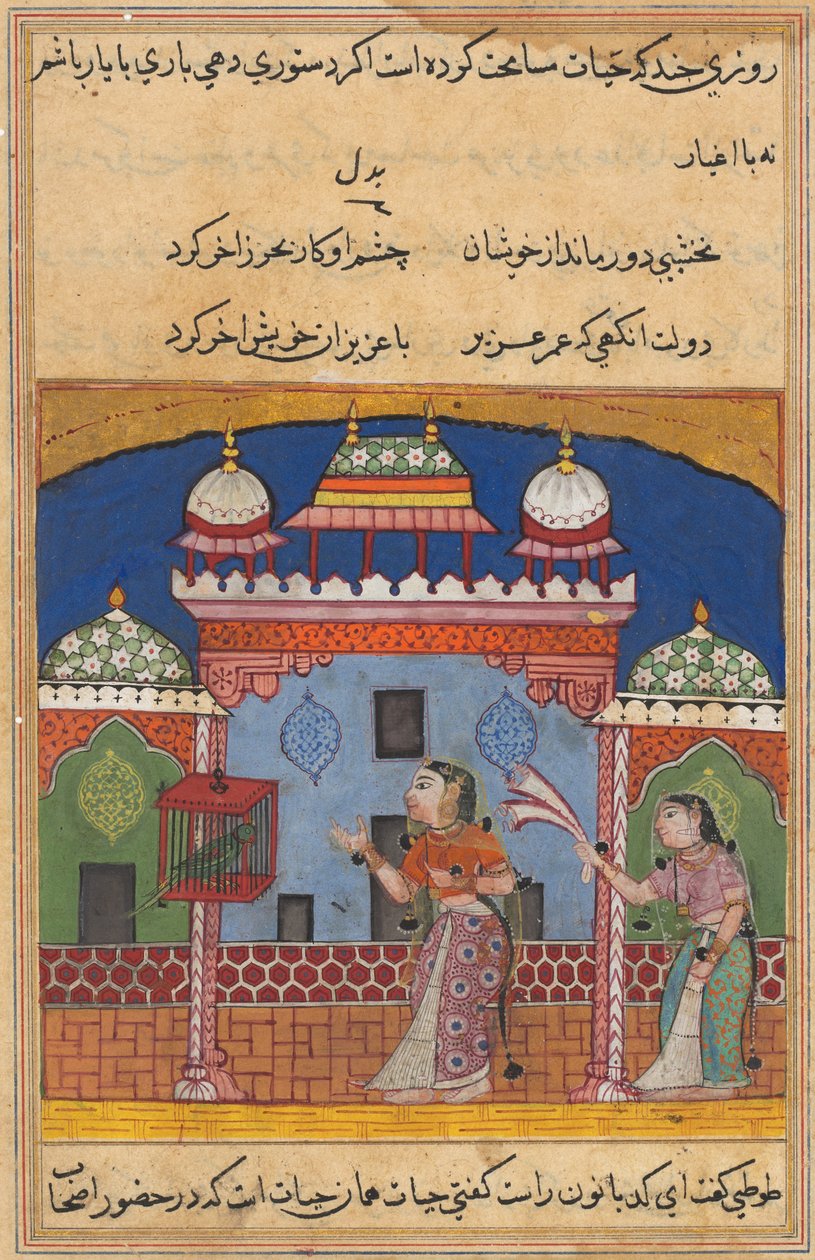 روزي چند که حیات مسامحت کرده است اکر دستوري دهي باري با یار باشم
نه با اغیار
بدل
نخشبي دور ماند از خویشان چشم او کار بحر زاخر کرد
دولت انکهي که عمر عزیز با عزیزان خویش اخر کرد
طوطي کفت اي کدبانون راست کفتي حیات همان حیات است که در حضور اصحاب